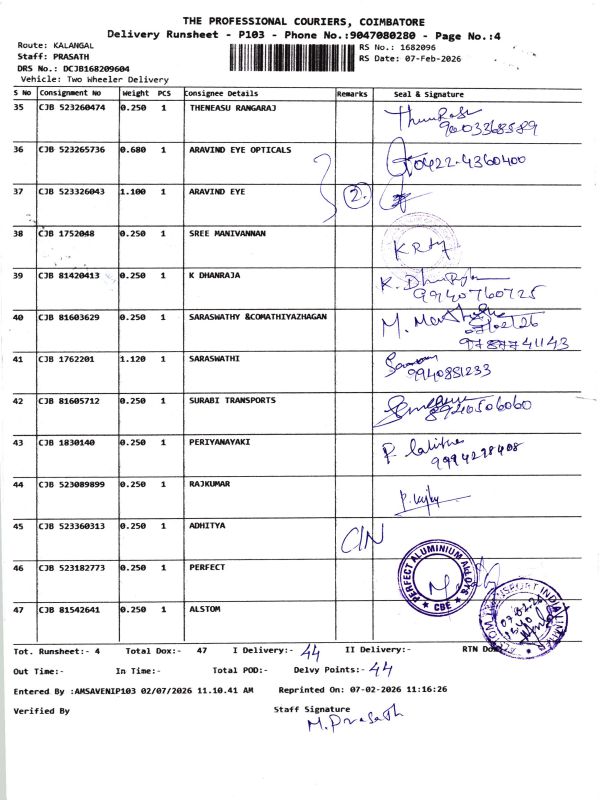 THE PROFESSIONAL COURIERS, COIMBATORE
Delivery Runsheet - P103 - Phone No.:9047080280 - Page No.:4
Route: KALANGAL
RS No.: 1682096
Staff: PRASATH
RS Date: 07-Feb-2026
DRS No.: DCJB168209604
Vehicle: Two Wheeler Delivery
S No Consignment No Weight PCS Consignee Details Remarks Seal & Signature
35 CJB 523260474 0.250 1 THENEASU RANGARAJ
9003368589
36 CJB 523265736 0.680 1 ARAVIND EYE OPTICALS 0422-4360400
37 CJB 523326043 1.100 1 ARAVIND EYE 2.
38 CJB 1752048 0.250 1 SREE MANIVANNAN
39 CJB 81420413 0.250 1 K DHANRAJA
9940760725
40 CJB 81603629 0.250 1 SARASWATHY &COMATHIYAZHAGAN
07/02/26
9787741143
41 CJB 1762201 1.120 1 SARASWATHI
9940851233
42 CJB 81605712 0.250 1 SURABI TRANSPORTS
8940506060
43 CJB 1830140 0.250 1 PERIYANAYAKI P. Lalitha
9994278408
44 CJB 523089899 0.250 1 RAJKUMAR
45 CJB 523360313 0.250 1 ADHITYA C/N
46 CJB 523182773 0.250 1 PERFECT PERFECT ALUMINIUM ALLOYS
★ CBE ★
47 CJB 81542641 0.250 1 ALSTOM
Tot. Runsheet:- 4 Total Dox:- 47 I Delivery:- 44 II Delivery:- RTN Dox
Out Time:- In Time:- Total POD:- Delvy Points:- 44
Entered By :AMSAVENIP103 02/07/2026 11.10.41 AM Reprinted On: 07-02-2026 11:16:26
Verified By
Staff Signature
M. Prasath